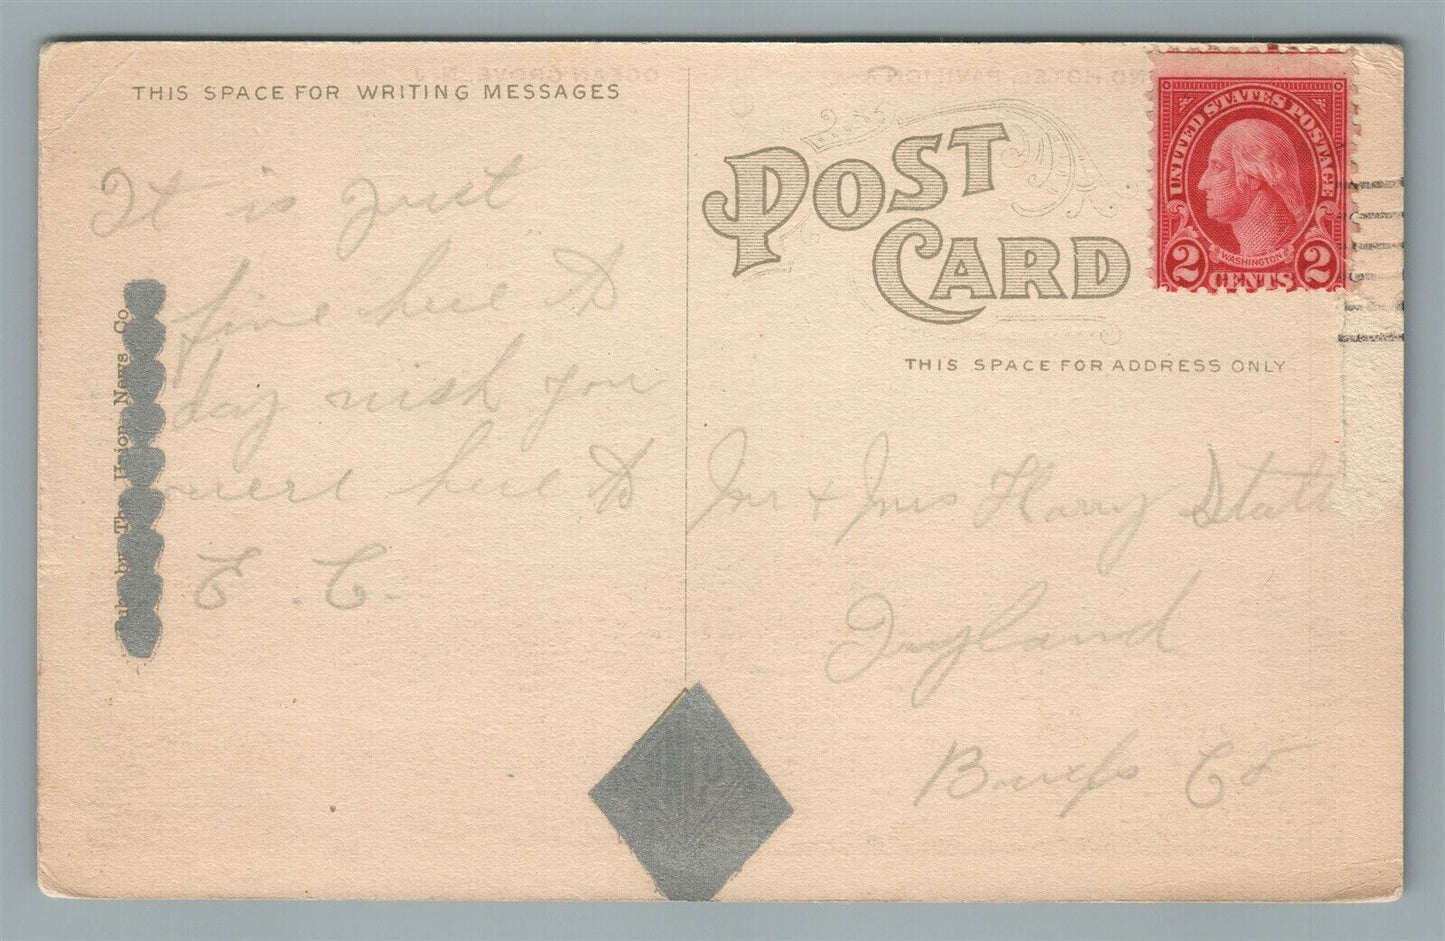 THIS SPACE FOR WRITING MESSAGES
OCEAN GROVE, N. J.
HOTEL PAVILION
POST
CARD
UNITED STATES POSTAGE
WASHINGTON
2 CENTS 2
THIS SPACE FOR ADDRESS ONLY
It is just
fine here to
day wish you
were here to
E. C.
by The Union News Co.
Mr + Mrs Harry
Ivyland
Bucks Co